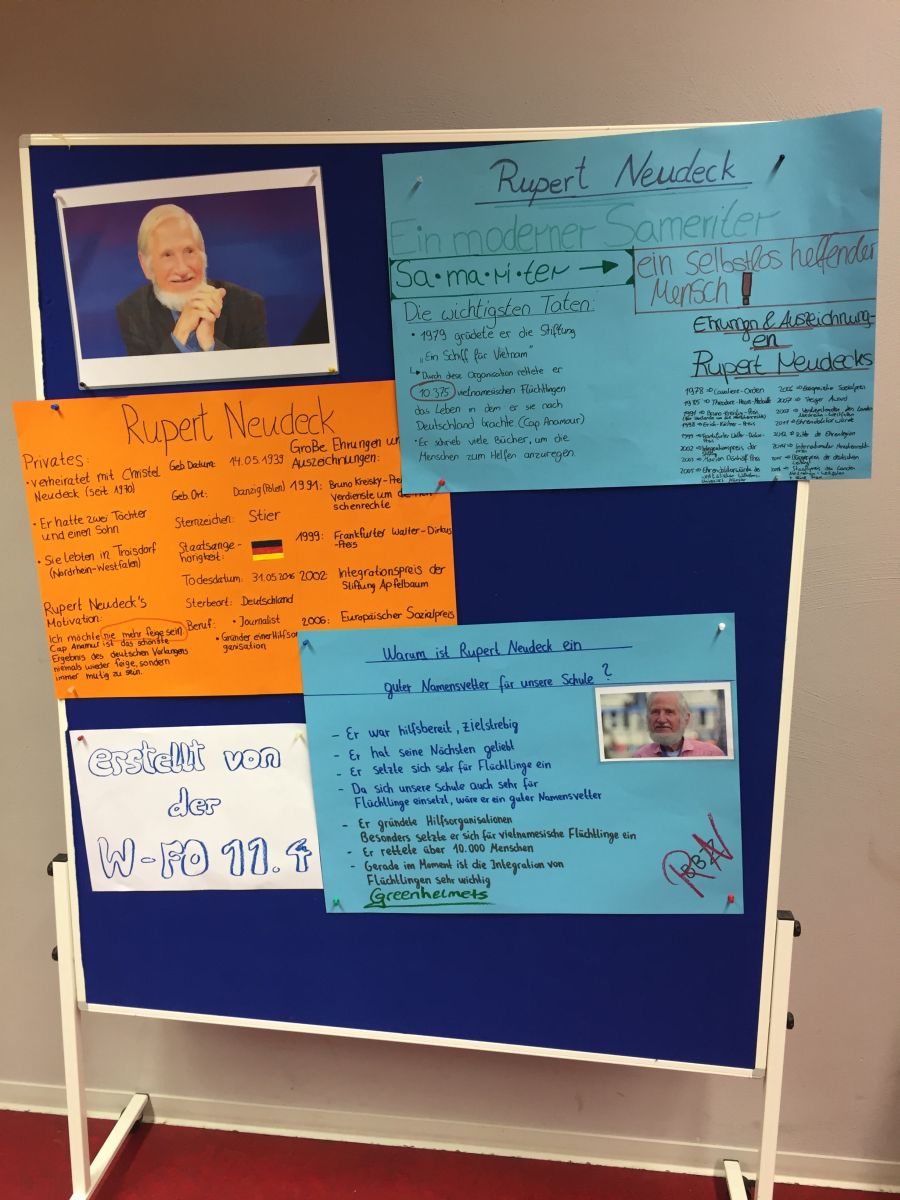 Rupert Neudeck
Ein moderner Sameriter
Sa•ma•ri•ter →
ein selbstlos helfender
Mensch !
Die wichtigsten Taten:
• 1979 grüdete er die Stiftung
„Ein Schiff für Vietnam"
Durch diese Organisation rettete er
10 375 vietnamesischen Flüchtlingen
das Leben in dem er sie nach
Deutschland brachte (Cap Anamour)
• Er schrieb viele Bücher, um die
Menschen zum Helfen anzuregen.
Ehrungn & Auszeichnung-
en
Rupert Neudecks
1985 ⇒ Theodor-Heuss-Medaille
Rupert Neudeck
Privates:
• verheiratet mit Christel
Neudeck (seit 1970)
• Er hatte zwei Töchter
und einen Sohn
• Sie lebten in Troisdorf
(Nordrhein-Westfalen)
Rupert Neudeck's
Motivation:
Ich möchte nie mehr feige sein.
Cap Anamur ist das schönste
Ergebnis des deutschen Verlangens
niemals wieder feige, sondern
immer mutig zu sein.
Geb Datum: 14.05.1939
Geb. Ort: Danzig (Polen)
Sternzeichen: Stier
Staatsange-
hörigkeit:
Todesdatum: 31.05.2016
Sterbeort: Deutschland
Beruf: • Journalist
• Gründer einer Hilfsor
ganisation
Große Ehrungen un
Auszeichnungen:
1991: Bruno Kreisky-Pre
Verdienste um die
schenrechte
1999: Frankfurter Walter-Dirks
-Preis
2002 Integrationspreis der
Stiftung Apfelbaum
2006: Europäischer Sozialpreis
Warum ist Rupert Neudeck ein
guter Namensvetter für unsere Schule ?
- Er war hilfsbereit, zielstrebig
- Er hat seine Nächsten geliebt
- Er setzte sich sehr für Flüchtlinge ein
- Da sich unsere Schule auch sehr für
Flüchtlinge einsetzt, wäre er ein guter Namensvetter
- Er gründete Hilfsorganisationen
Besonders setzte er sich für vietnamesische Flüchtlinge ein
- Er rettete über 10.000 Menschen
- Gerade im Moment ist die Integration von
Flüchtlingen sehr wichtig
Greenhelmets
erstellt von
der
W-FO 11.4